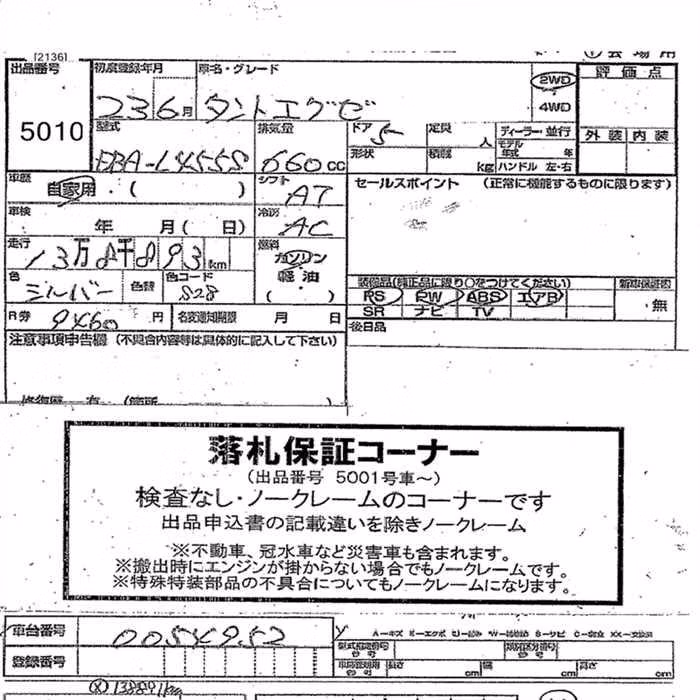 [2136]
出品番号 初度登録年月 車名・グレード 評価点
5010 23 6月 タントエグゼ 2WD 4WD
型式 排気量 ドア 定員 人 ディーラー・並行 外装 内装
EBA-L455S 660cc 5 形状 積載 kg モデル年式 年 ハンドル 左・右
車歴 自家用・( ) シフト AT セールスポイント (正常に機能するものに限ります)
車検 年 月( 日) 冷房 AC
走行 13万8千893km 燃料 ガソリン 軽油 ( )
色 シルバー 色替 色コード S28
装備品(純正品に限り○をつけてください)
PS PW ABS エアB 無
SR ナビ TV
R券 9460円 名変通知期限 月 日 後日品
注意事項申告欄 (不具合内容等は具体的に記入して下さい)
落札保証コーナー
(出品番号 5001号車~)
検査なし・ノークレームのコーナーです
出品申込書の記載違いを除きノークレーム
※不動車、冠水車など災害車も含まれます。
※搬出時にエンジンが掛からない場合でもノークレームです。
※特殊特装部品の不具合についてもノークレームになります。
車台番号 0054952
登録番号 長さ cm 幅 cm 高さ cm